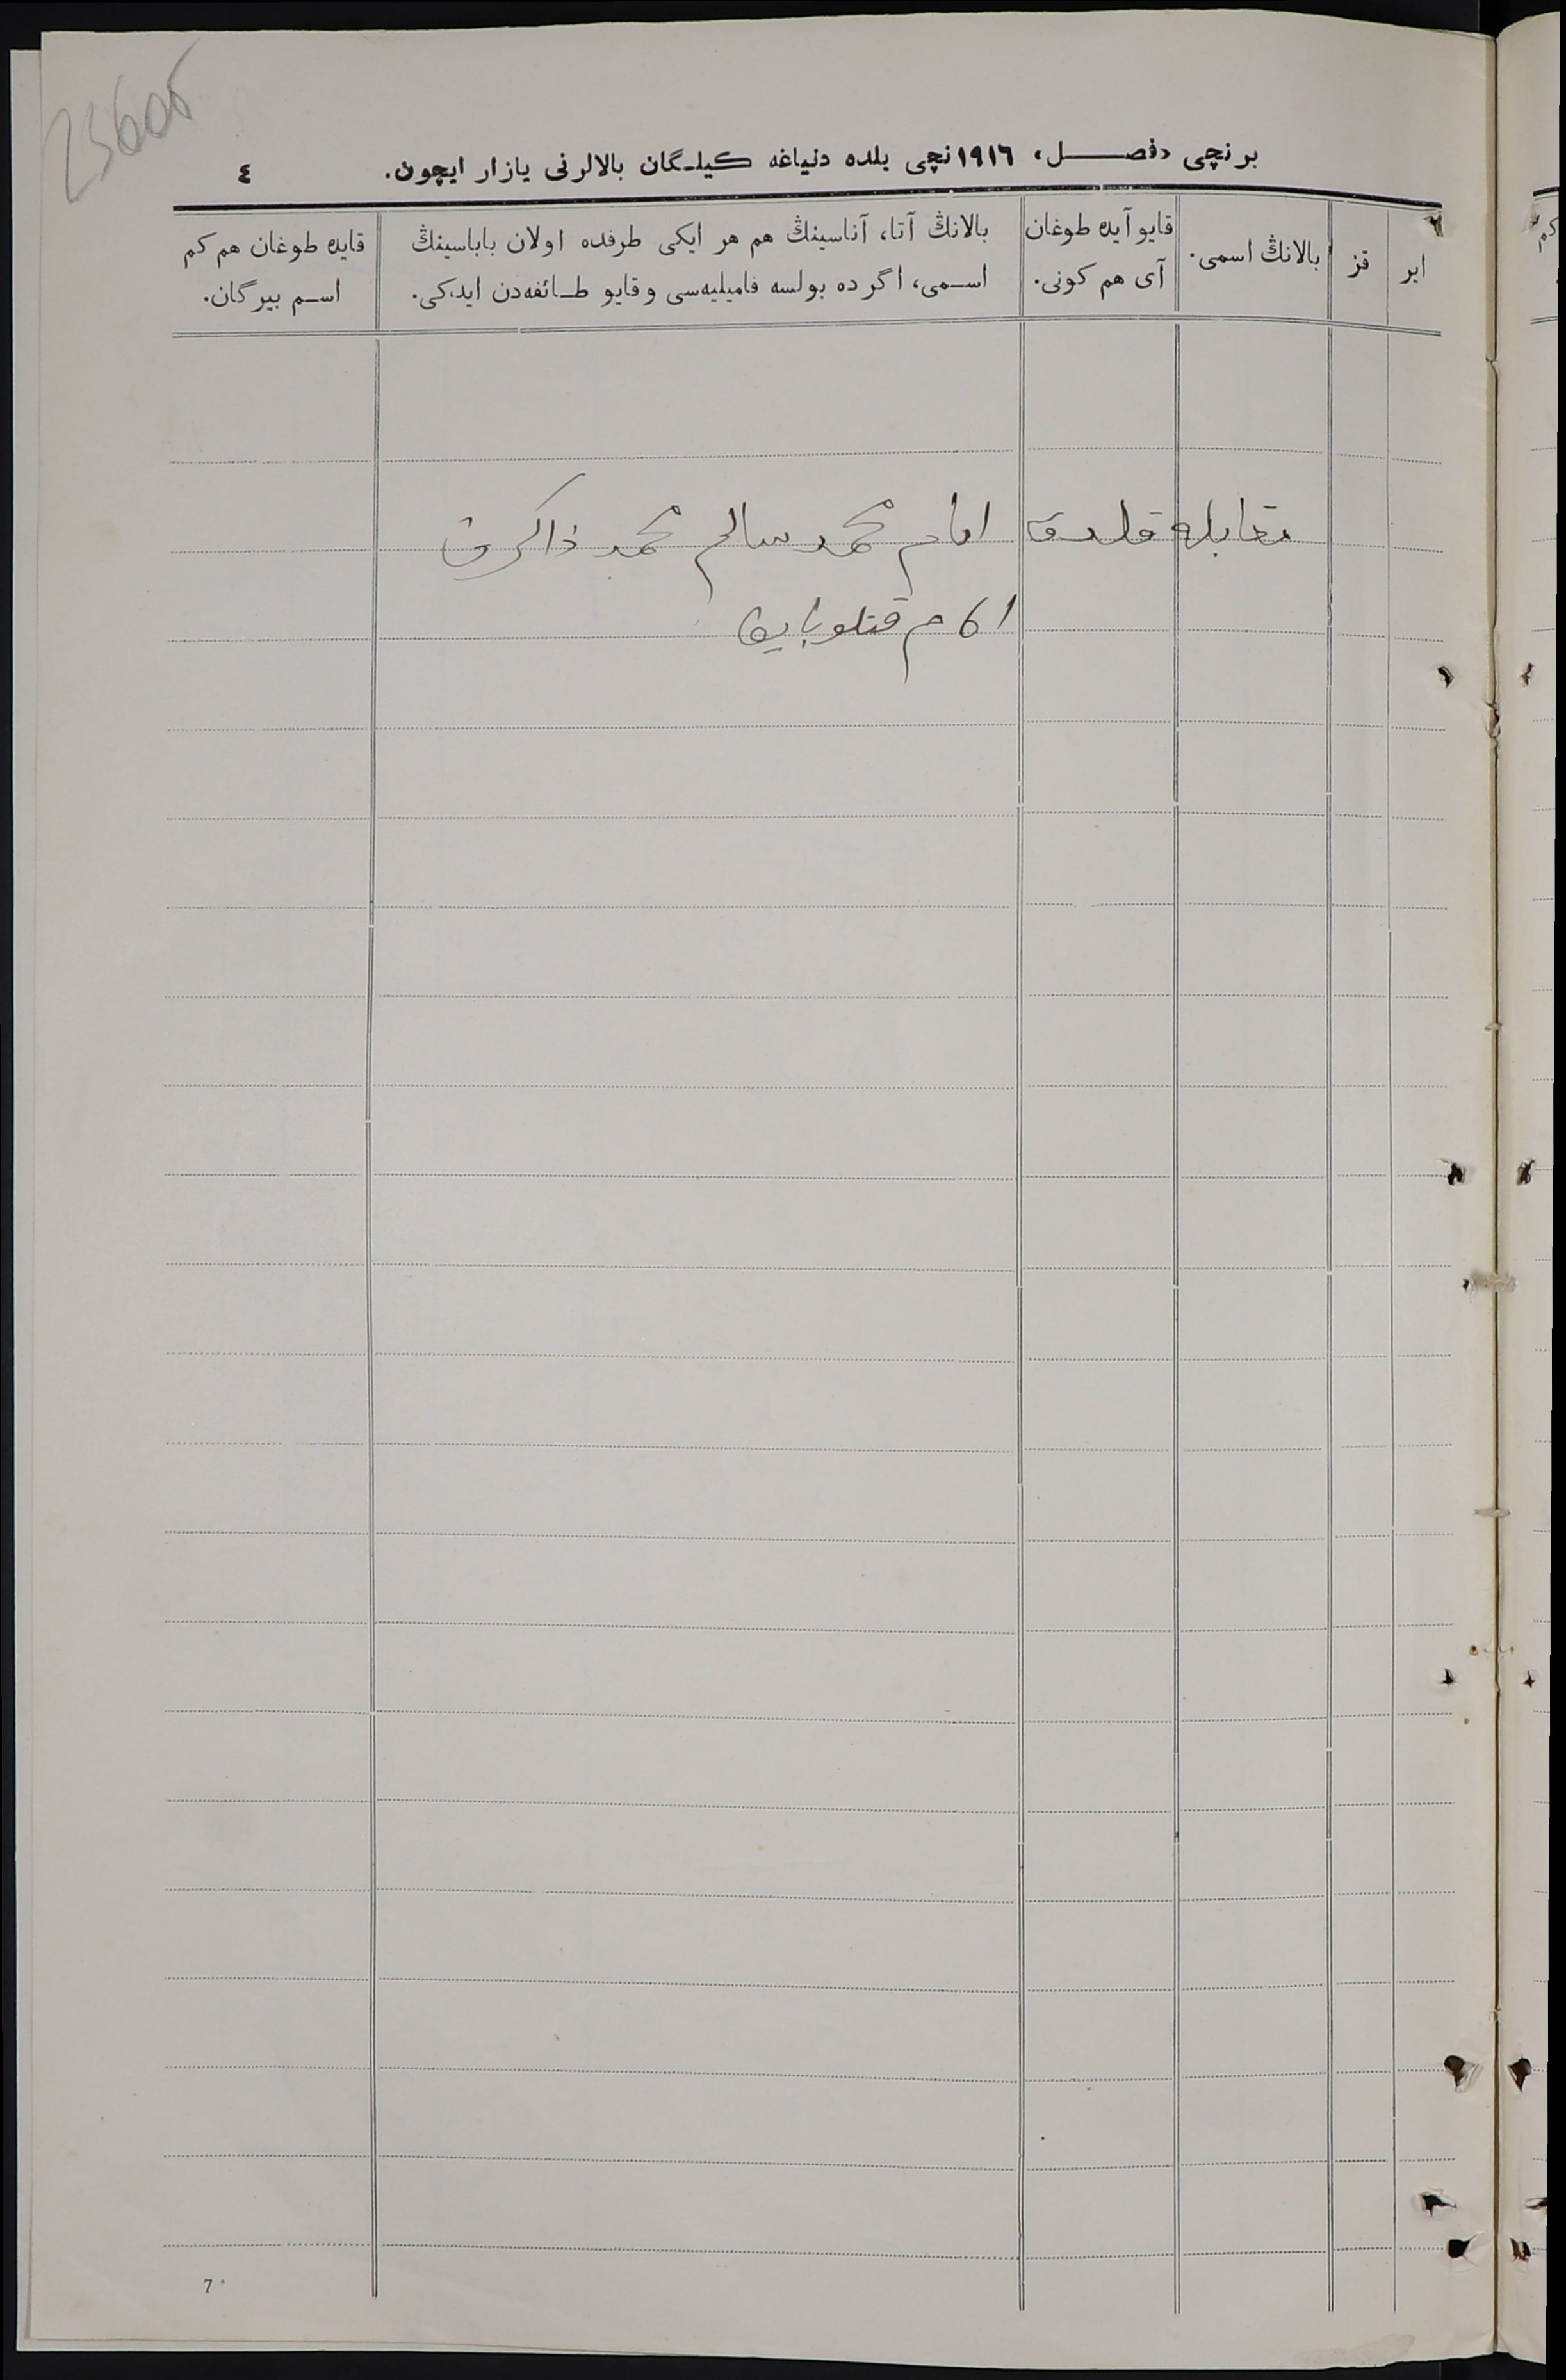 برنچی «فصل» ١٩١٦نچی یلده دنیاغه کیلگان بالالرنی یازار ایچون.
٤
ایر
قز
بالانڭ اسمی.
قایو آیده طوغان
آی هم کونی.
بالانڭ آتا، آناسینڭ هم هر ایکی طرفده اولان باباسینڭ
اسمی، اگر ده بولسه فامیلیه‌سی وقایو طائفه‌دن ایدکی.
قایده طوغان هم کم
اسم بیرگان.
مقابله قلدق امام محمد سالم محمد ذاکرف
امام قتلوبایف
7*